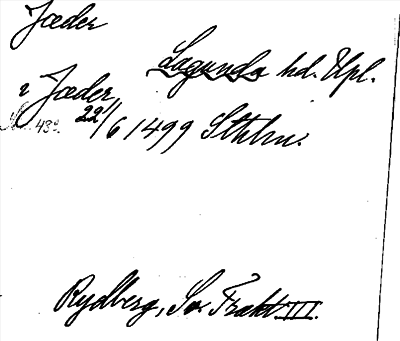 Jæder
Lagunda hd. Upl.
i Jæder
22/6 1499 Sthlm.
Rydberg, Sv. Trakt. III.